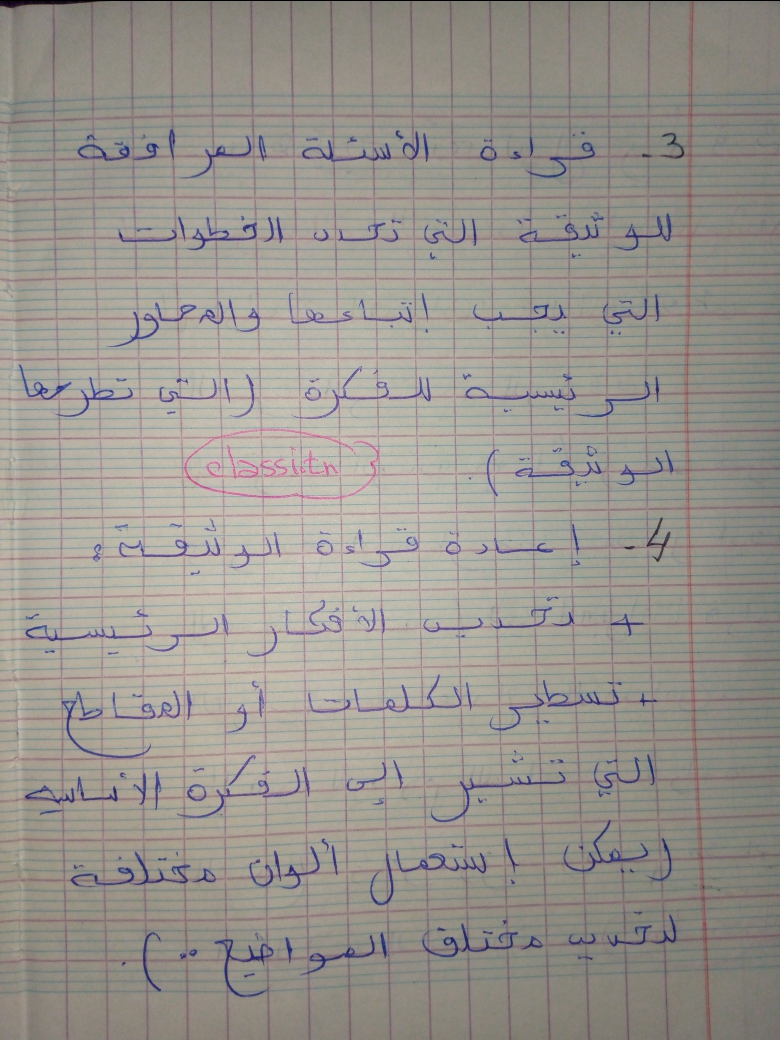 3- قراءة الأسئلة المرافقة
للوثيقة التي تحدد الخطوات
التي يجب إتباعها والمحاور
الرئيسية للفكرة (التي تطرحها
الوثيقة).
classi.tn
4- إعادة قراءة الوثيقة:
+ تحديد الأفكار الرئيسية
+ تسطير الكلمات أو المقاطع
التي تشير إلى الفكرة الأساسية
(يمكن إستعمال ألوان مختلفة
لتحديد مختلف المواضيع ..).